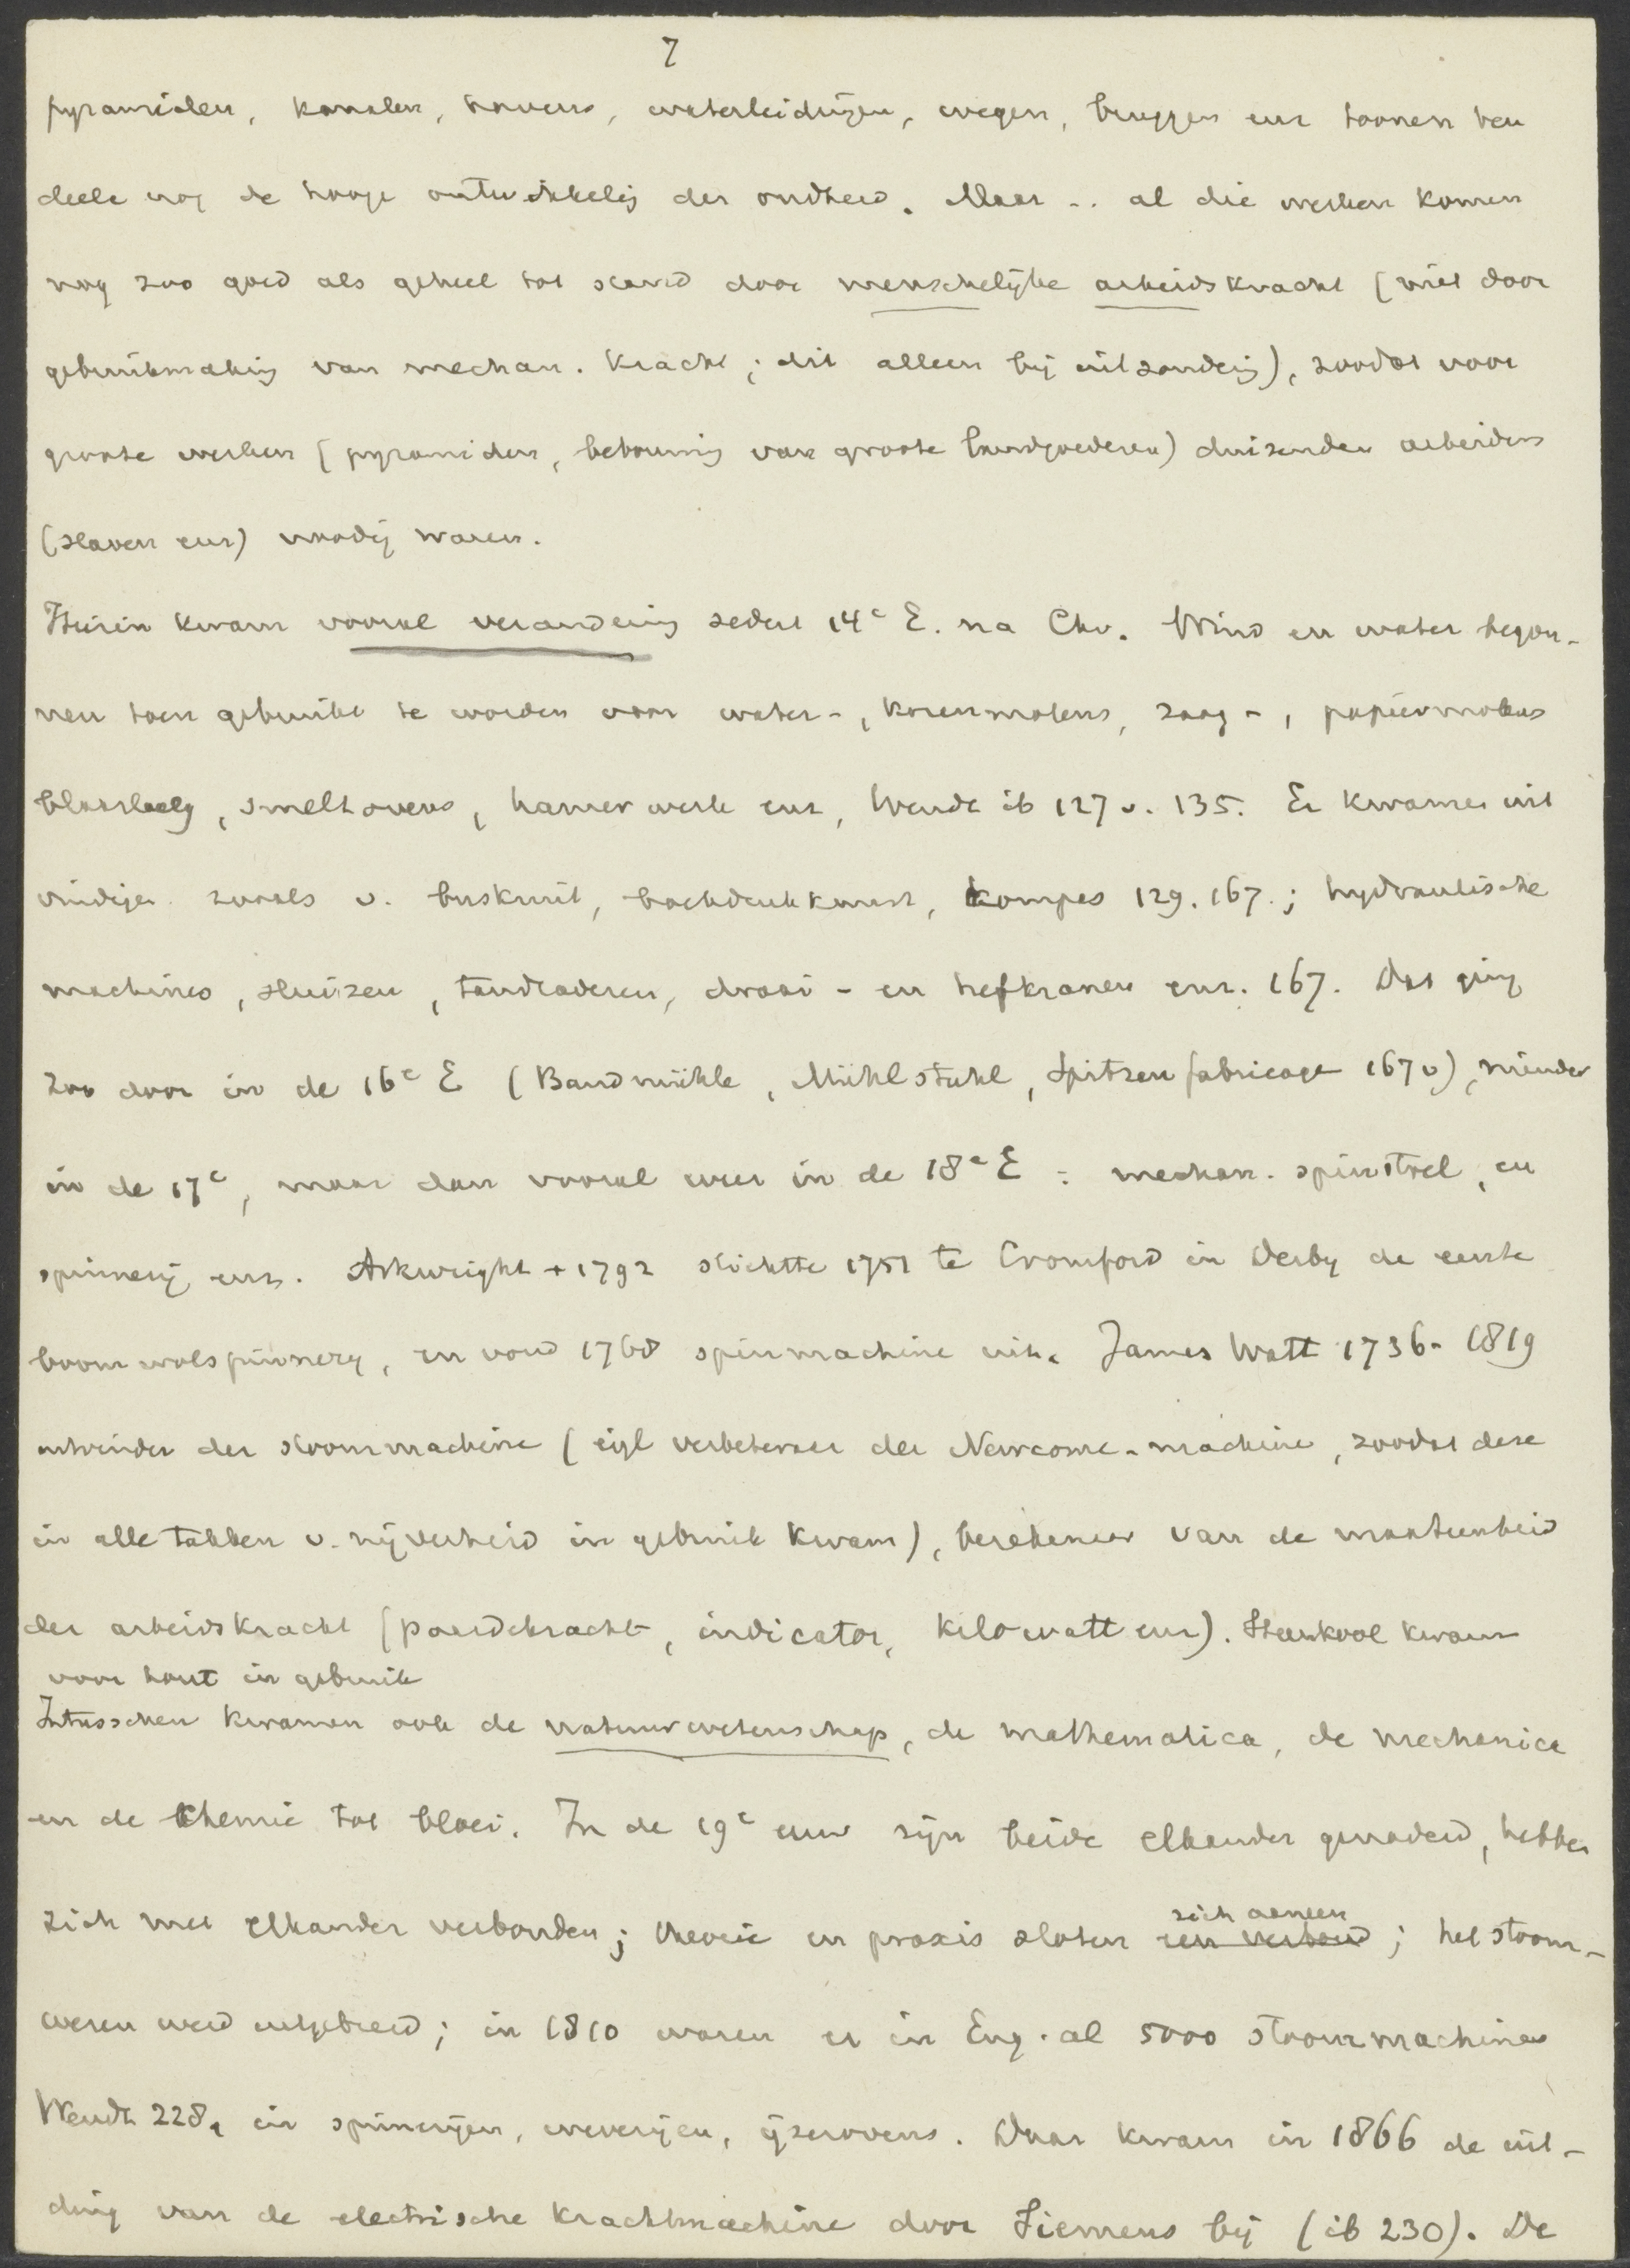 7
pyramiden, kanalen, havens, waterleidingen, wegen, bruggen enz toonen ten
deele nog de hooge ontwikkelig der oudheid. Maar .. al die werken komen
nog zoo goed als geheel tot stand door menschelijke arbeidskracht (niet door
gebruikmakig van mechan. kracht; dit alleen bij uitzonderig), zoodat voor
groote werken (pyramiden, bebouwing van groote landgoederen) duizenden arbeiders
(slaven enz) noodig waren.
Hierin kwam vooral verandering sedert 14e E. na Chr. Wind en water begon-
nen toen gebruikt te worden voor water-, korenmolens, zaag-, papiermolens
blaasbalg, smeltovens, hamerwerk enz, Wendt ib 127 v. 135. Er kwamen uit
vindigen zooals v. buskruit, boekdrukkunst, kompas 129. 167.; hydraulische
machines, sluizen, tandraderen, draai- en hefkranen enz. 167. Dat ging
zoo door in de 16e E (Bandmühle, Mühlstuhl, Spitzenfabricage 167 v), minder
in de 17e, maar dan vooral weer in de 18e E: mechan. spinstoel, en
spinnerij enz. Arkwright + 1792 stichtte 1751 te Cromford in Derby de eerste
boomwolspinnerij, en vond 1768 spinmachine uit. James Watt 1736-1819
uitvinder der stoommachine (eigl verbeteraar der Newcome-machine, zoodat deze
in alle takken v. nijverheid in gebruik kwam), berekenaar van de maateenheid
der arbeidskracht (paardekracht, indicator, kilowatt enz). Steenkool kwam
voor hout in gebruik
Intusschen kwamen ook de natuurwetenschap, de mathematica, de mechanica
en de chemie tot bloei. In de 19e eeuw zijn beide elkander genaderd, hebben
zich met elkander verbonden; theorie en praxis sloten zich aaneen een verbond; het stoom-
wezen werd uitgebreid; in 1810 waren er in Eng. al 5000 stoommachines
Wendt 228, in spinnerijen, weverijen, ijzerovens. Daar kwam in 1866 de uit-
ding van de electrische krachtmachine door Siemens bij (ib 230). De